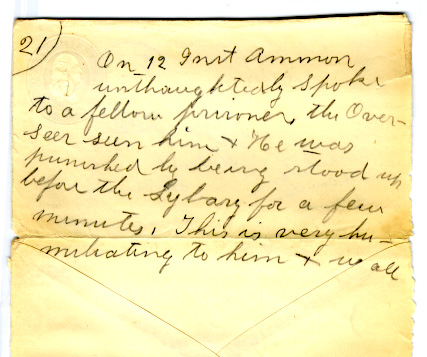 21)
On 12 Inst Ammon
unthaughtedly spoke
to a fellow prisoner, the Over-
seer seen him & He was
punished by being stood up
before the Lybary for a few
minutes. This is very hu-
miliating to him & we all